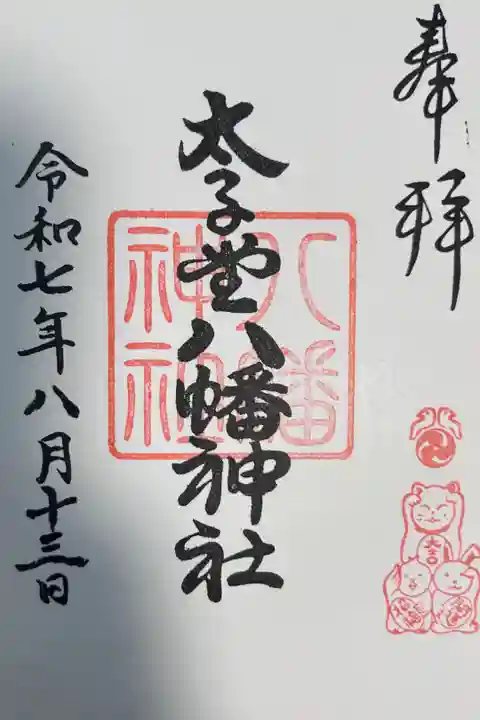 奉拝
太子堂八幡神社
八幡
神社
令和七年八月十三日